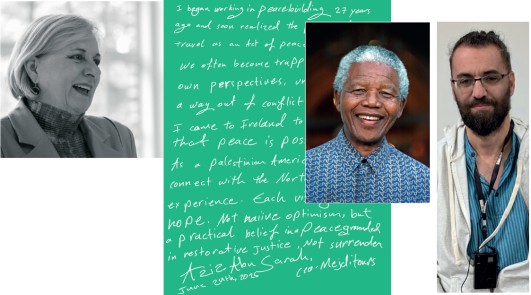 I began working in peacebuilding 27 years
ago and soon realized the
travel as an act of peace
We often become trapp
own perspectives, un
a way out of conflict
I came to Ireland to
that peace is pos
As a palestinian America
connect with the North
experience. Each vis
hope. Not naive optimism, but
a practical belief in a peace grounded
in restorative justice, Not surrender
Aziz Abu Sarah,
CEO-Mejditours
June 24th 2025